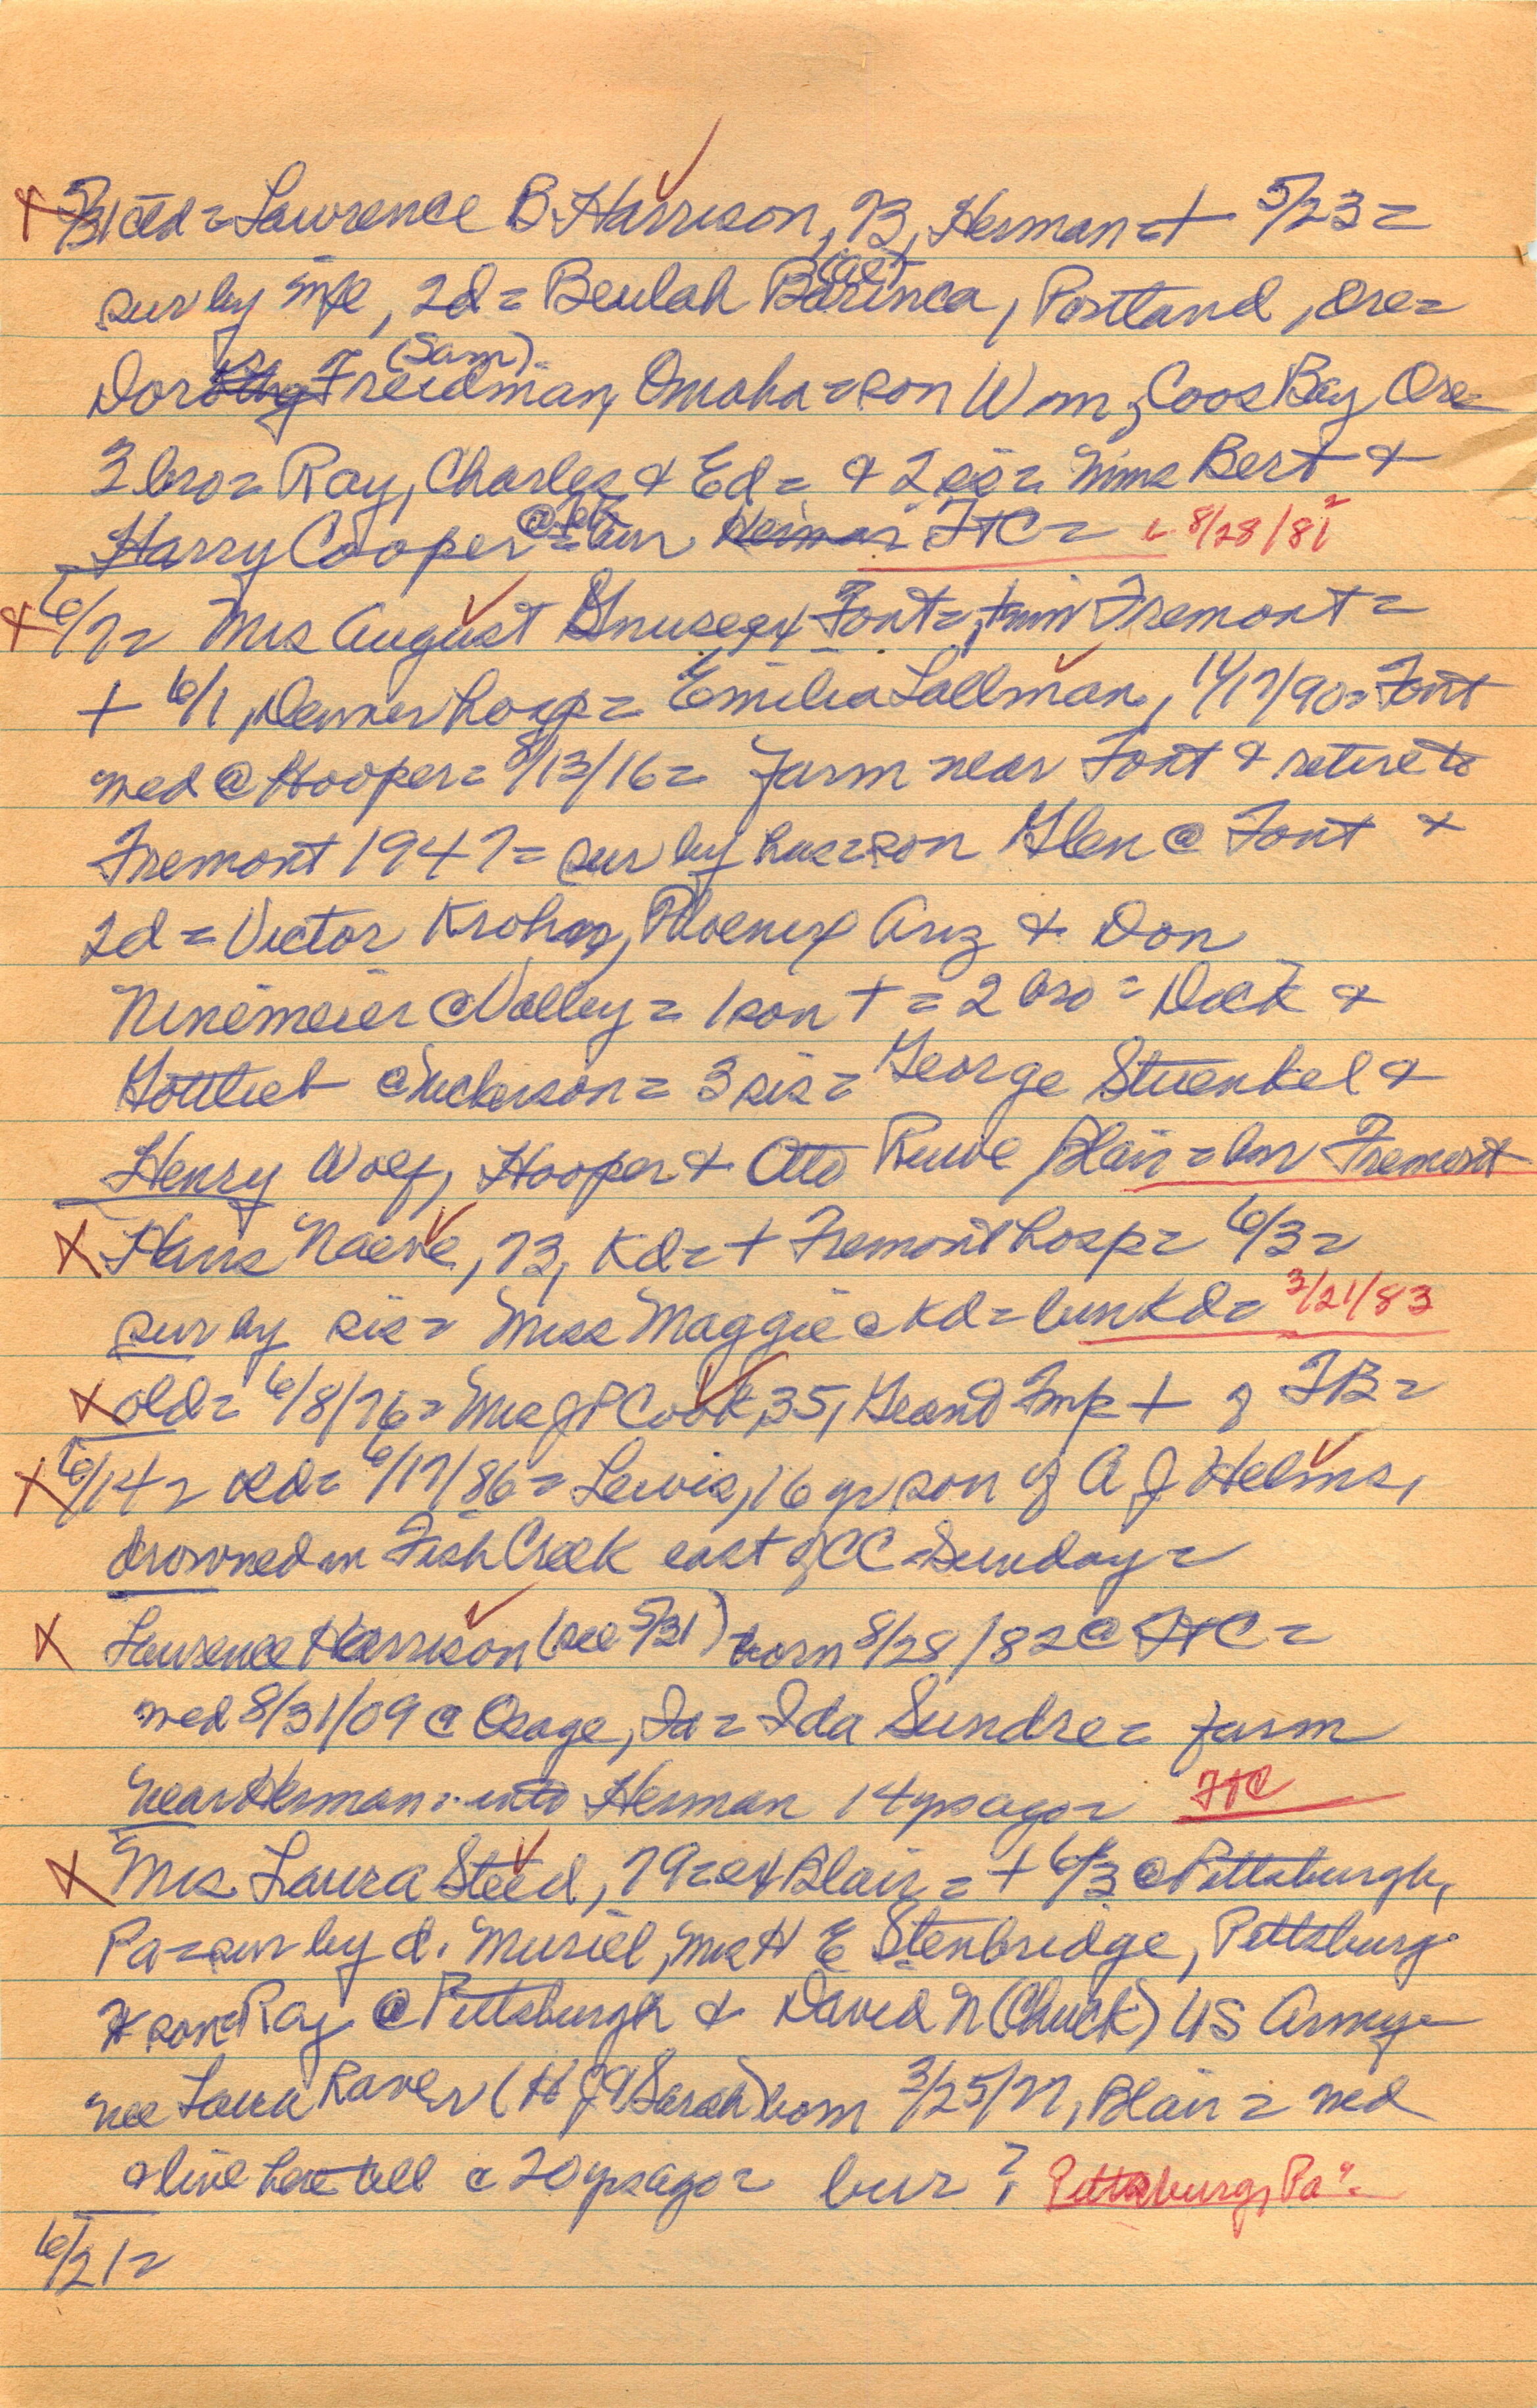 5/31 old = Lawrence B. Harrison, 73, Herman = + 5/23 =
sur by wfe, 2d = Beulah Barinca, Portland, Ore =
Dorothy (Sam) Freidman, Omaha = son Wm, Coos Bay Ore =
3 bro = Ray, Charles & Ed = & 2 sis = Mms Bert &
Harry Cooper = bur Herman FtC = 8/28/81
6/7 = Mrs August Gnuse, Font = Fremont =
+ 6/1, Denver hosp = Emilia Lallman, 11/17/90 = Font
med @ Hooper = 8/13/16 = farm near Font & retire to
Fremont 1947 = sur by hus = son Glen @ Font &
2d = Victor Krohn, Phoenix Ariz & Don
Ninemeier @ Valley = 1 son + = 2 bro = Dick &
Gottlieb @ Nickerson = 3 sis = George Stuenkel &
Henry Wolf, Hooper & Otto Ruwe Blair = bur Fremont
X Hans Naeve, 73, Kd = + Fremont hosp = 6/3 =
sur by sis = Miss Maggie @ Kd = bur Kd = 3/21/83
X old = 6/8/76 = Mrs J P Cook, 35, Grant Twp + of TB =
X 6/14 = old = 6/17/86 = Lewis, 16 yr son of A J Helms,
drowned in Fish Creek east of CC = Sunday =
X Lawrence Harrison (see 5/31) born 8/28/82 @ FtC =
med 8/31/09 @ Osage, Ia = Ida Sundre = farm
near Herman = into Herman 14 yrs ago = FtC
X Mrs Laura Steed, 79 = ex Blair = + 6/3 @ Pittsburgh,
Pa = sur by d. Muriel, Mrs H E Stenbridge, Pittsburg
son = Ray @ Pittsburgh & David N (Chuck) US Army =
nee Laura Raver (H J & Sarah) born 3/25/77, Blair = med
& live here till c 20 yrs ago = bur ? Pittsburg, Pa =
6/21 =